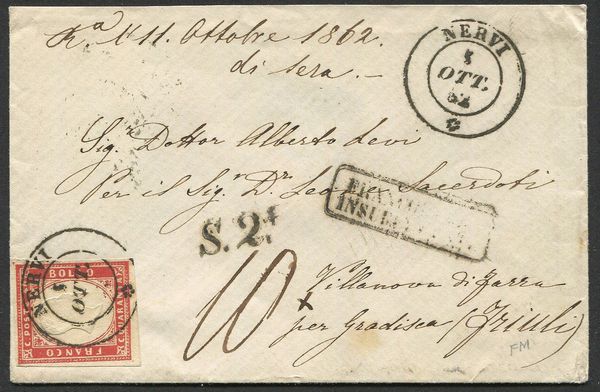 Ra l'11. Ottobre 1862.
di sera.
NERVI
5
OTT.
62
Sig. Dottor Alberto Levi
Per il Sigr. Dr. Leone Sacerdoti
FRANCO
INSUFFI
S. 2.
10
NERVI
5
OTT
C. POSTE
BOLLO
C. QUARANTA
FRANCO
Villanova di Farra
x
per Gradisca (Friuli)
FM